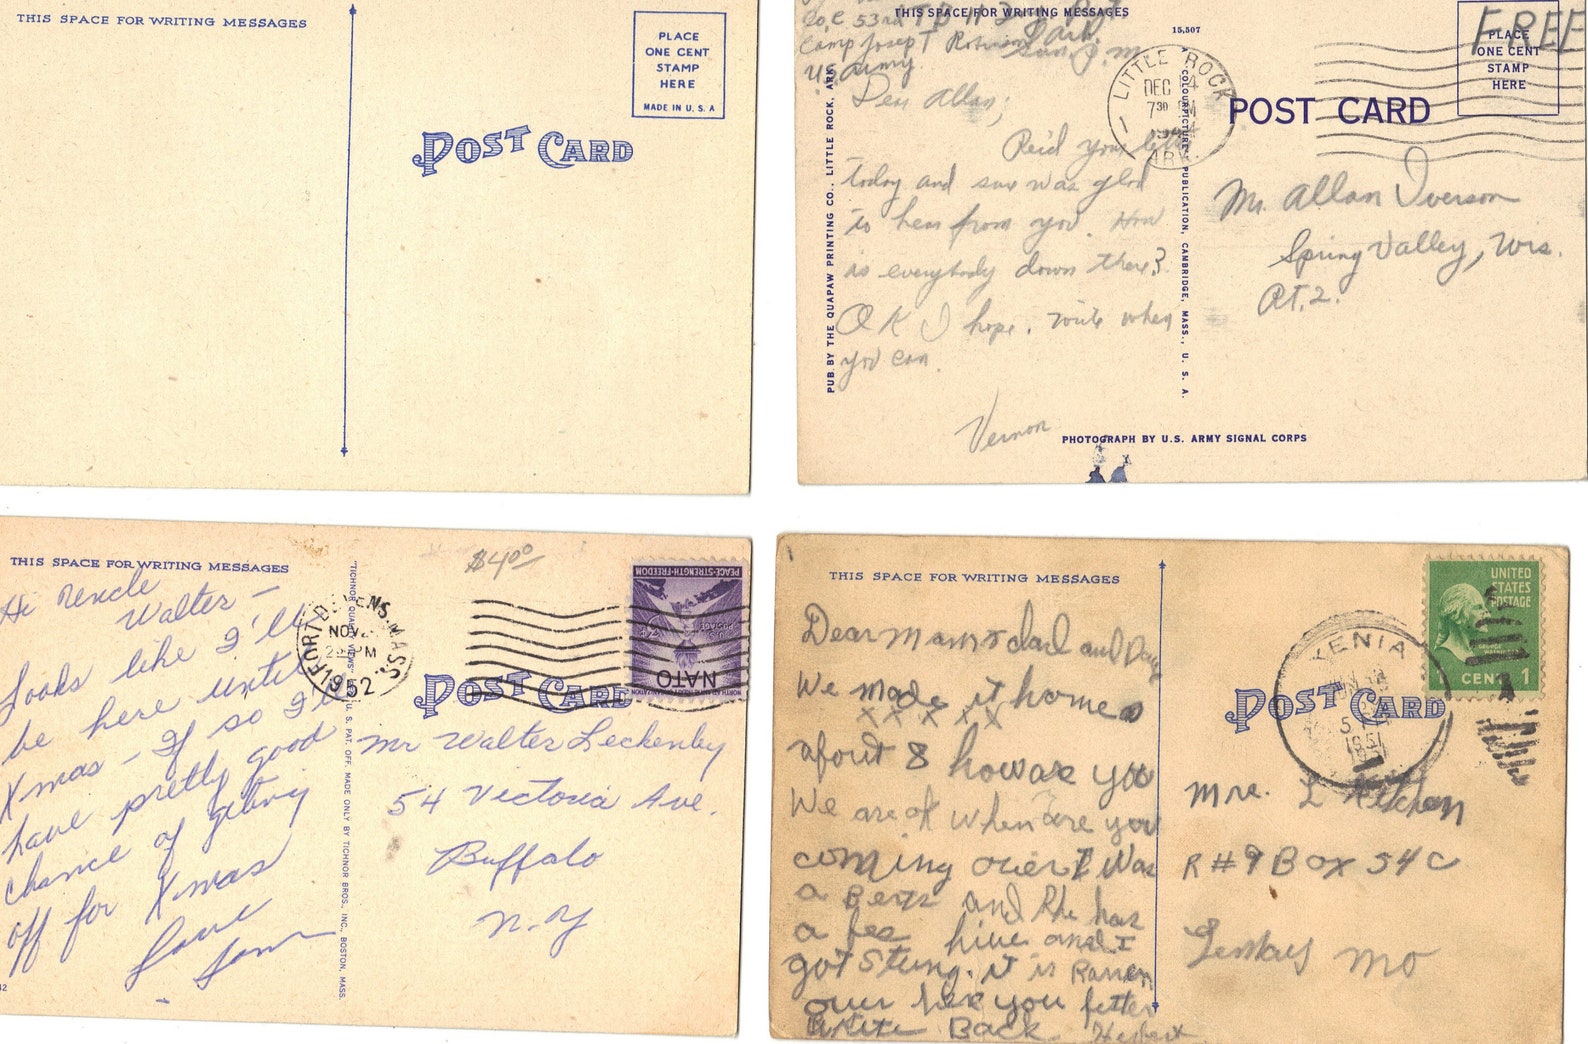 THIS SPACE FOR WRITING MESSAGES
PLACE
ONE CENT
STAMP
HERE
MADE IN U.S.A
POST CARD
THIS SPACE FOR WRITING MESSAGES
Co. C 53rd
Camp Josep T Robinson Ark.
U.S. Army
15,507
FREE
PLACE
ONE CENT
STAMP
HERE
LITTLE ROCK
DEC 4
7 30 PM
1944
ARK.
POST CARD
Dear Allan,
Rec'd your letter
today and sure was glad
to hear from you. How
is everybody down there?
OK I hope. Write when
you can.
Vernon
Mr. Allan Iverson
Spring Valley, Wis.
Rt. 2.
PUB. BY THE QUAPAW PRINTING CO., LITTLE ROCK, ARK.
COLOURPICTURE PUBLICATION, CAMBRIDGE, MASS., U. S. A.
PHOTOGRAPH BY U.S. ARMY SIGNAL CORPS
THIS SPACE FOR WRITING MESSAGES
$4.00
Hi Uncle
Walter -
Looks like I'll
be here until
Xmas - If so I'll
have pretty good
chance of getting
off for Xmas
Love
"TICHNOR QUALITY VIEWS" REG. U. S. PAT. OFF. MADE ONLY BY TICHNOR BROS., INC., BOSTON, MASS.
FORT DEVENS, MASS.
NOV
PM
1952
PEACE-STRENGTH-FREEDOM
U.S. POSTAGE
3¢
NATO
NORTH ATLANTIC TREATY ORGANIZATION
POST CARD
Mr Walter Leckenby
54 Victoria Ave.
Buffalo
N. Y
THIS SPACE FOR WRITING MESSAGES
Dear mam & dad and
We made it home
x x x x x
about 8 how are you
We are ok when are you
coming over I was
a and she has
a bee hive and I
got stung. it is
over here you better
write Back Herbert
XENIA
1951
UNITED
STATES
POSTAGE
1 CENT 1
POST CARD
Mrs. L Kitchen
R #9 Box 54C
Lemay Mo